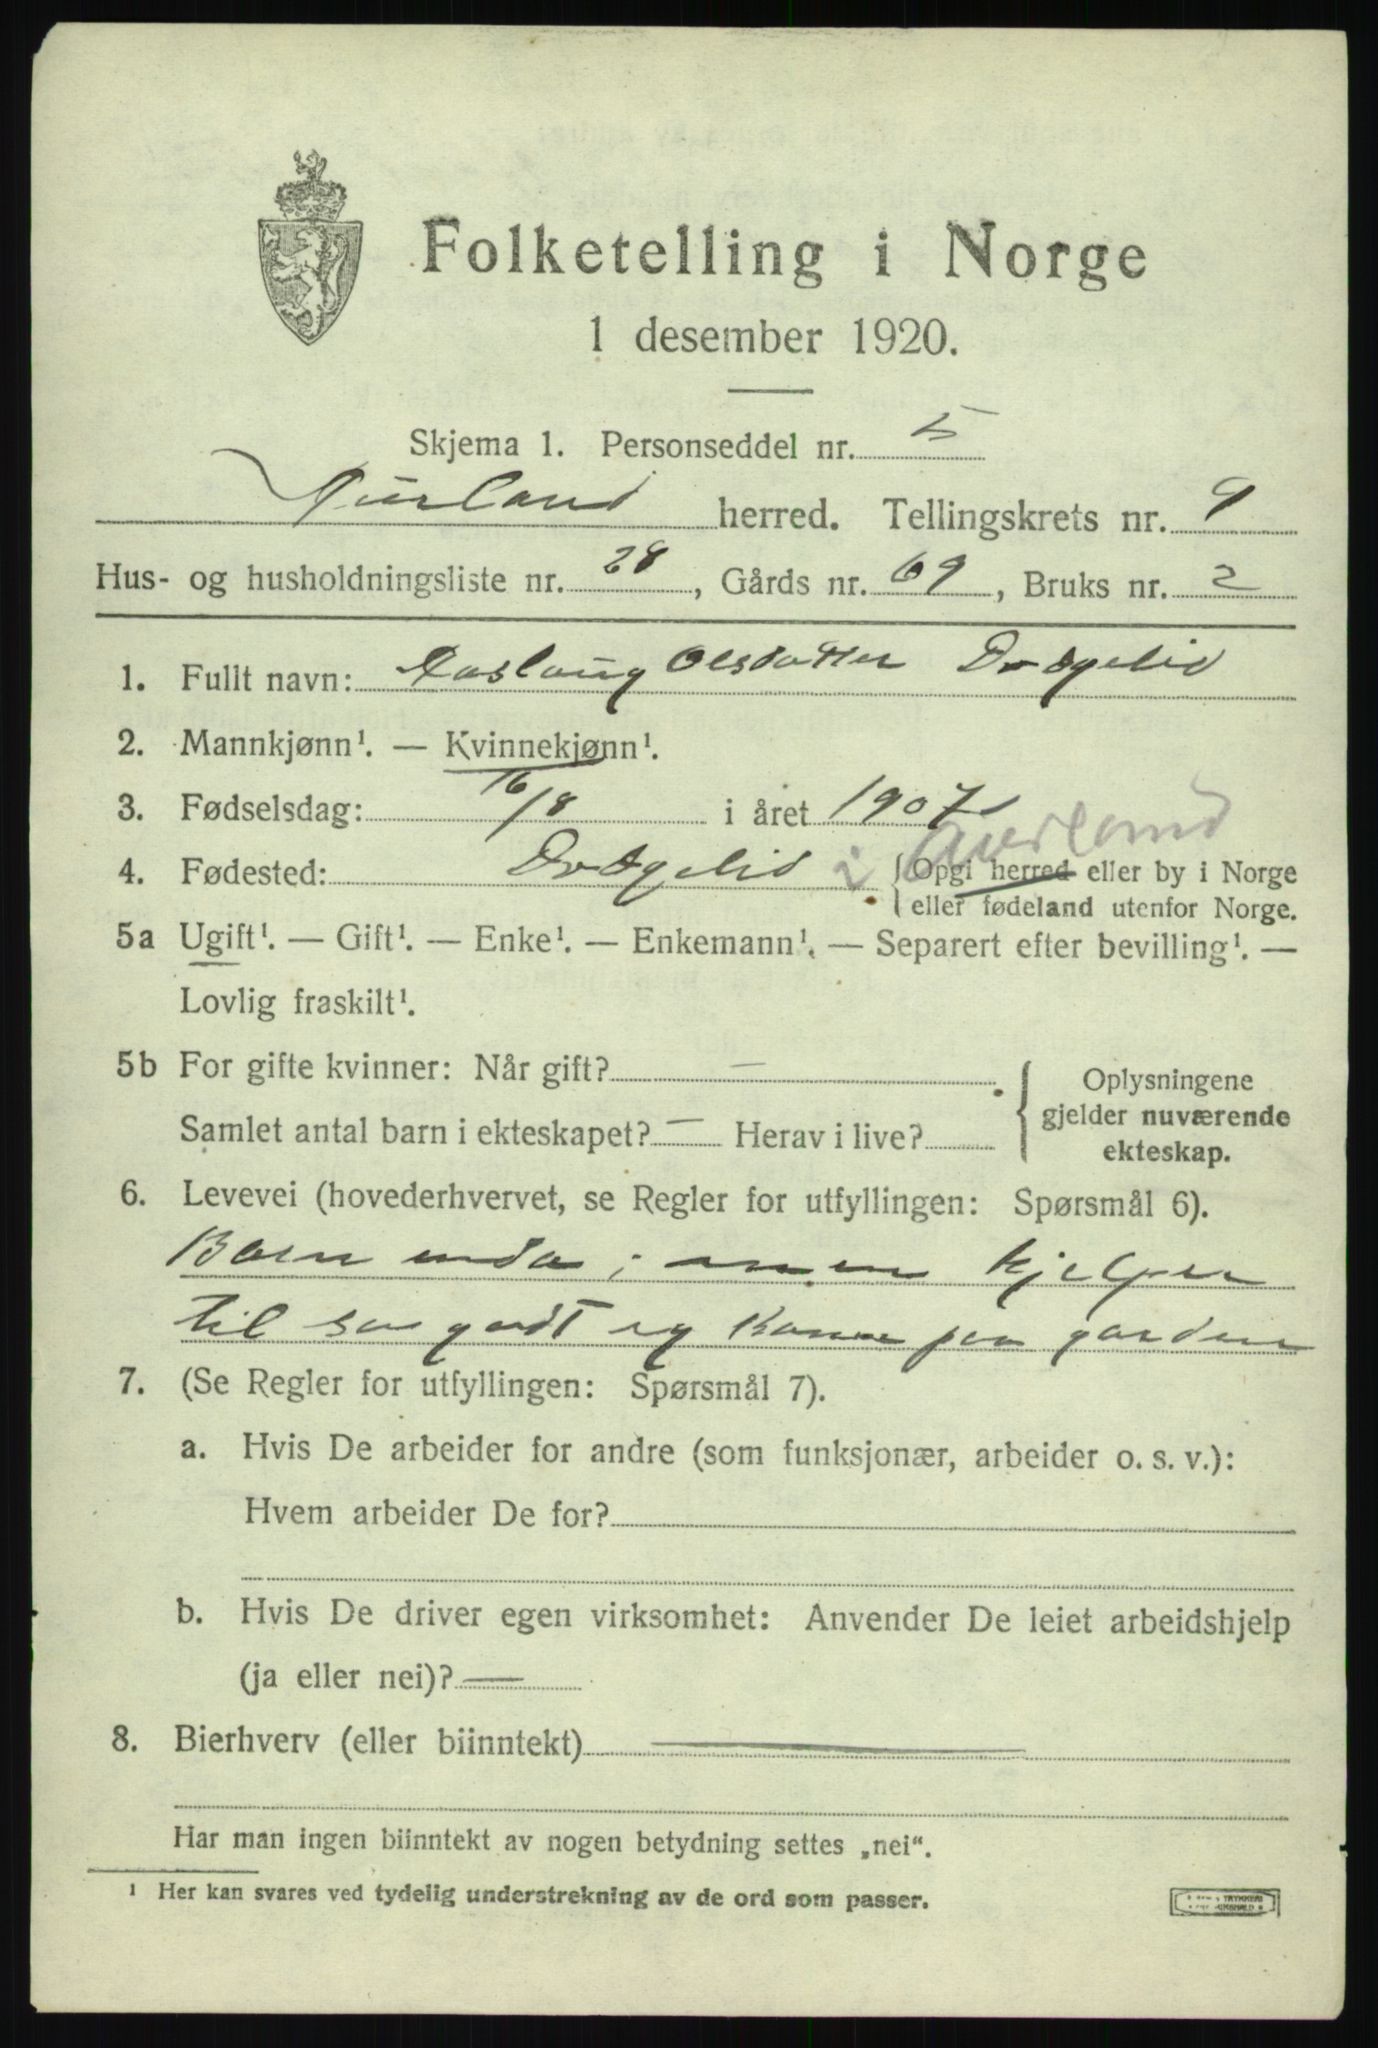 Folketelling i Norge
1 desember 1920.
Skjema 1. Personseddel nr. 5
Aurland herred. Tellingskrets nr. 9
Hus- og husholdningsliste nr. 28, Gårds nr. 69, Bruks nr. 2
1. Fullt navn: Aaslaug Olsdatter Drægelid
2. Mannkjønn¹. — Kvinnekjønn¹.
3. Fødselsdag: 16/8 i året 1907
4. Fødested: Drægelid i Aurland {Opgi herred eller by i Norge
eller fødeland utenfor Norge.
5a Ugift¹. — Gift¹. — Enke¹. — Enkemann¹. — Separert efter bevilling¹. —
Lovlig fraskilt¹.
5b For gifte kvinner: Når gift? —
Samlet antal barn i ekteskapet? — Herav i live?
{Oplysningene
gjelder nuværende
ekteskap.
6. Levevei (hovederhvervet, se Regler for utfyllingen: Spørsmål 6).
Barn enda; men hjelper
til saa godt eg kann paa garden
7. (Se Regler for utfyllingen: Spørsmål 7).
a. Hvis De arbeider for andre (som funksjonær, arbeider o. s. v.):
Hvem arbeider De for?
b. Hvis De driver egen virksomhet: Anvender De leiet arbeidshjelp
(ja eller nei)? —
8. Bierhverv (eller biinntekt) —
Har man ingen biinntekt av nogen betydning settes „nei“.
¹ Her kan svares ved tydelig understrekning av de ord som passer.